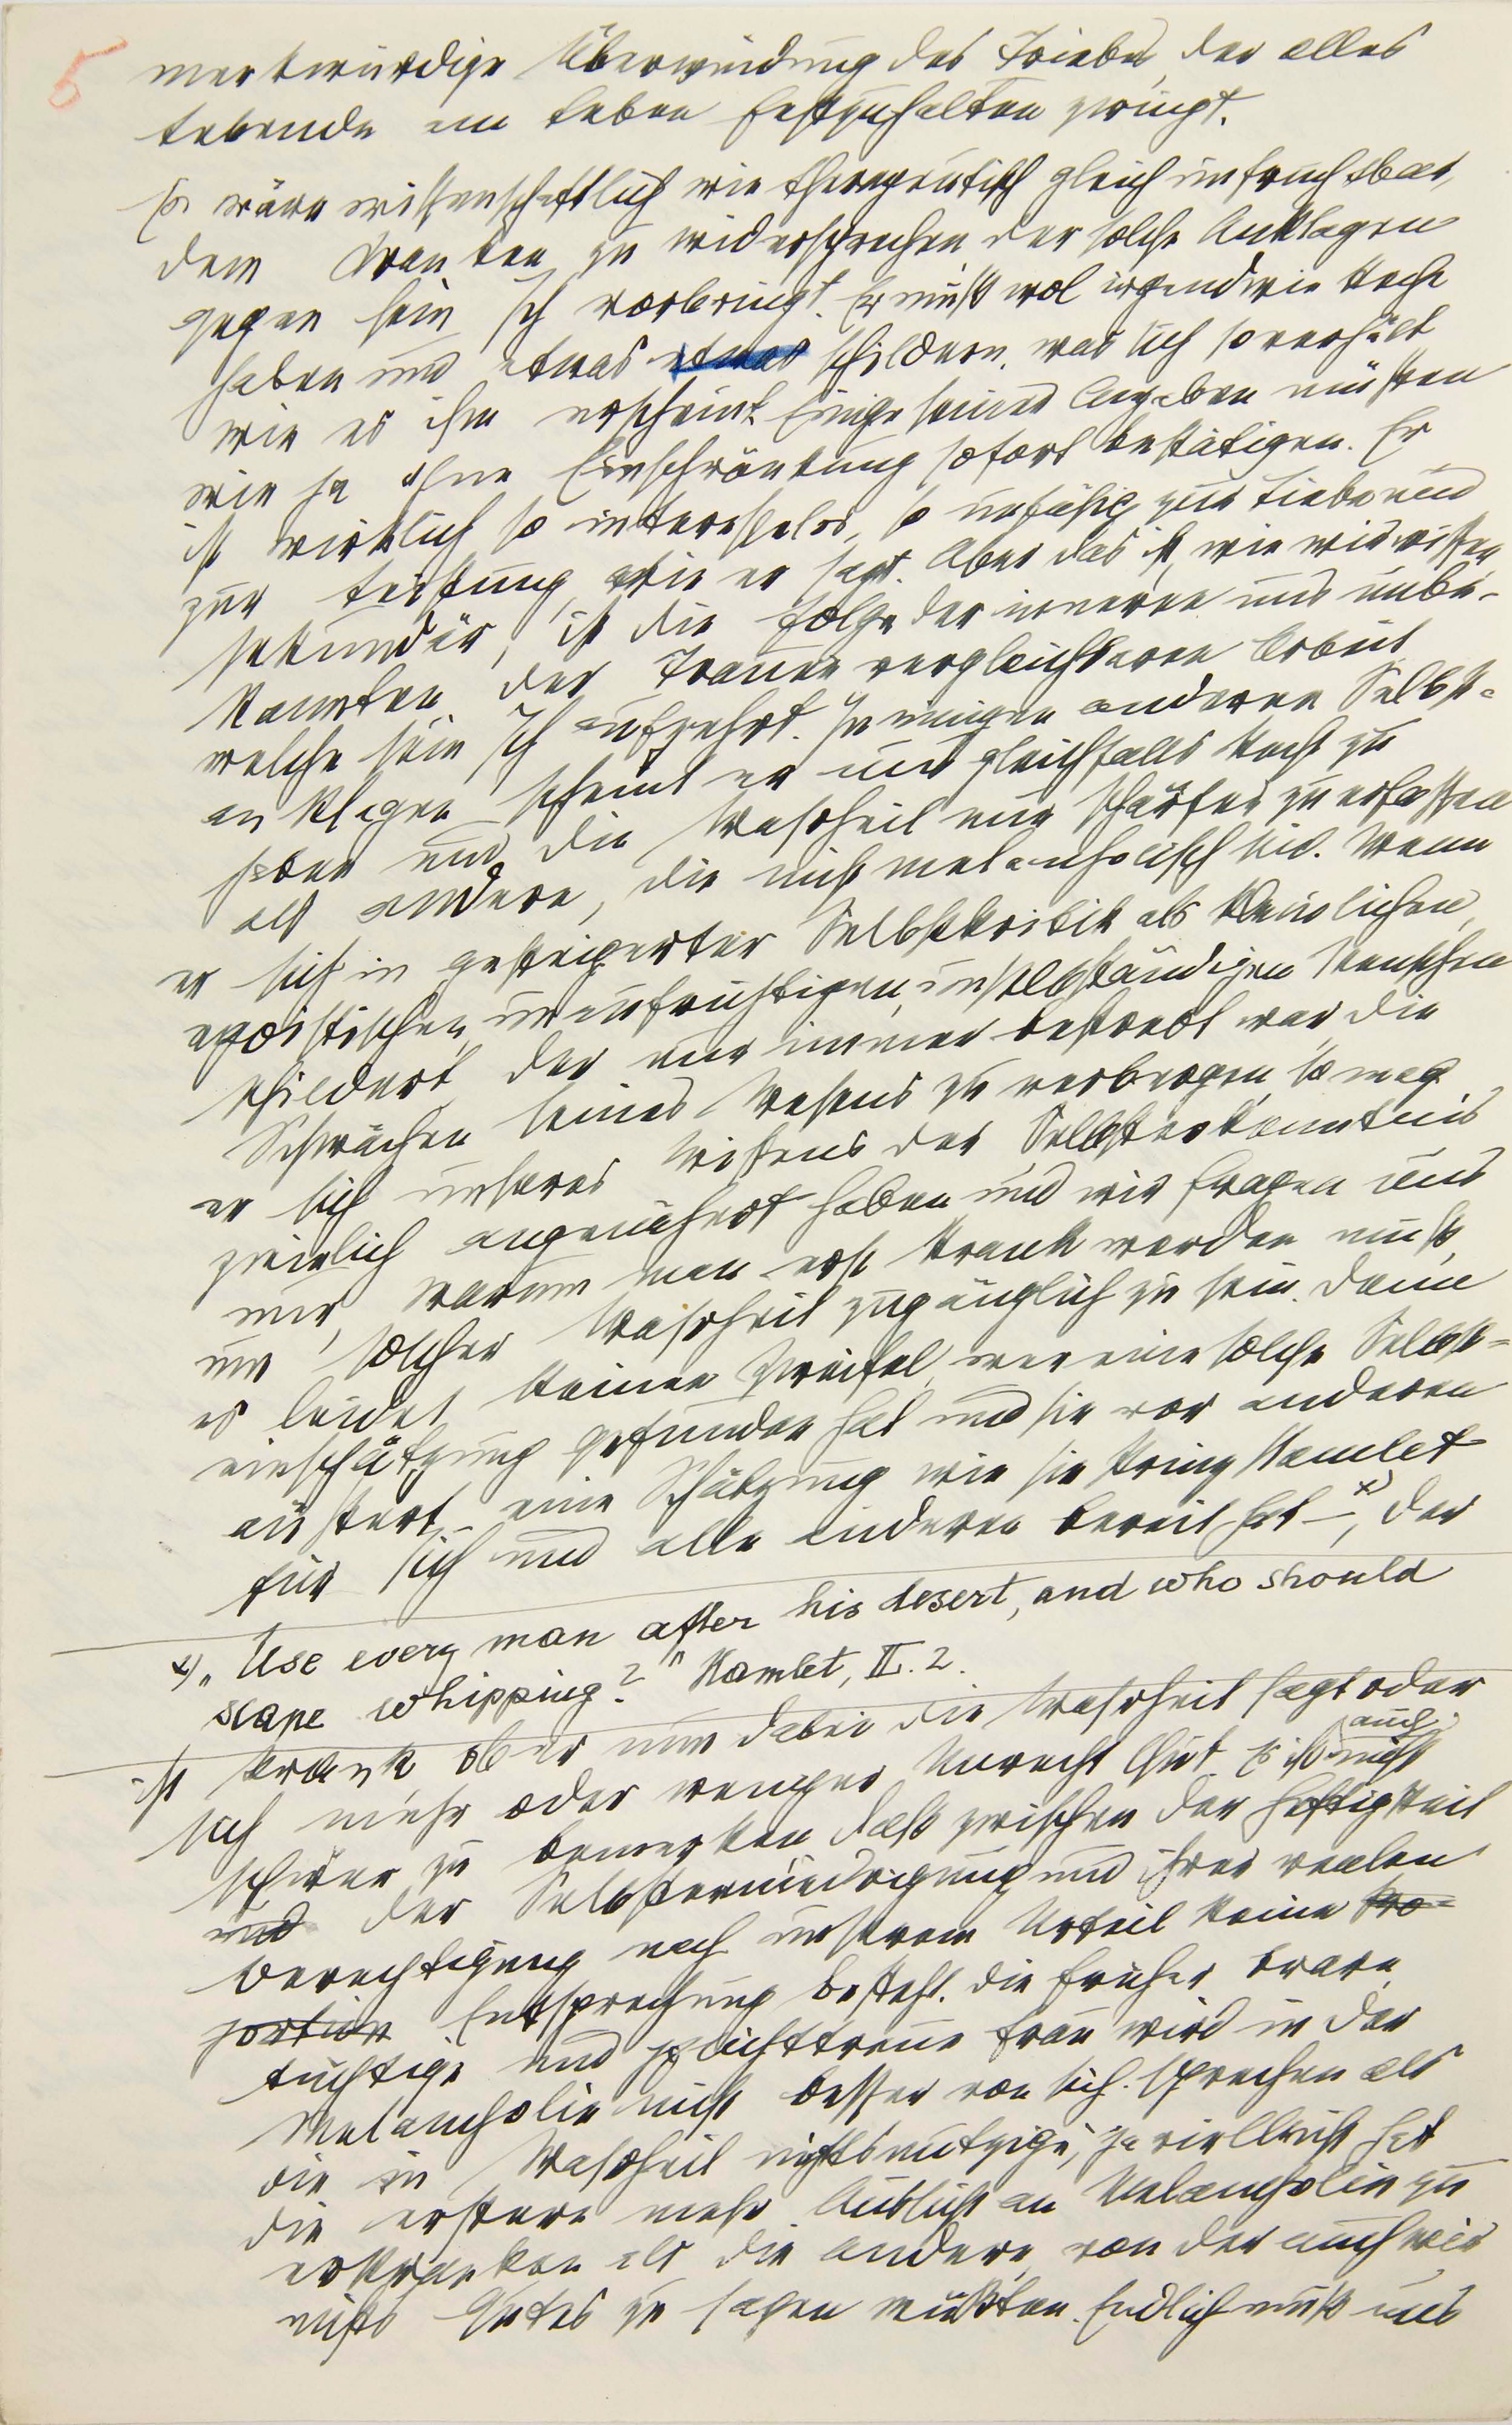 5
merkwürdige Überwindung des Triebes, der alles
Lebende am Leben festzuhalten zwingt.
Es wäre wissenschaftlich wie therapeutisch gleich unfruchtbar,
dem Kranken zu widersprechen, der solche Anklagen
gegen sein Ich vorbringt. Er muß wol irgendwie Recht
haben und etwas etwas schildern, was sich so verhält
wie es ihm erscheint. Einige seiner Angaben müssen
wir ja ohne Einschränkung sofort bestätigen. Er
ist wirklich so interesselos, so unfähig zur Liebe und
zur Leistung, wie er sagt. Aber das ist, wie wir wissen,
sekundär, ist die Folge der inneren uns unbe-
kannten, der Trauer vergleichbaren Arbeit,
welche sein Ich aufzehrt. In einigen anderen Selbst-
anklagen scheint er uns gleichfalls Recht zu
haben und die Wahrheit nur schärfer zu erfassen
als andere, die nicht melancholisch sind. Wenn
er sich in gesteigerter Selbstkritik als kleinlichen,
egoistischen, unaufrichtigen, unselbständigen Menschen
schildert, der nur immer bestrebt war, die
Schwächen seines Wesens zu verbergen, so mag
er sich unseres Wissens der Selbsterkenntnis
ziemlich angenähert haben und wir fragen uns
nur, warum man erst krank werden muß,
um solcher Wahrheit zugänglich zu sein. Denn
es leidet keinen Zweifel, wer eine solche Selbst-
einschätzung gefunden hat und sie vor anderen
äußert – eine Schätzung wie sie Prinz Hamlet
für sich und alle anderen bereit hat – x), der
x) „Use every man after his desert, and who should
scape whipping?" Hamlet, II. 2.
ist krank, ob er nun dabei die Wahrheit sagt oder
sich mehr oder weniger Unrecht thut. Es ist auch nicht
schwer zu bemerken, daß zwischen der Heftigkeit
und der Selbsterniedrigung und ihrer realen
Berechtigung nach unserem Urteil keine Pro-
portion Entsprechung besteht. Die früher brave,
tüchtige und pflichttreue Frau wird in der
Melancholie nicht besser von sich sprechen als
die in Wahrheit nichtsnutzige, ja vielleicht hat
die erstere mehr Aussicht an Melancholie zu
erkranken als die andere, von der auch wir
nichts Gutes zu sagen wüßten. Endlich muß uns